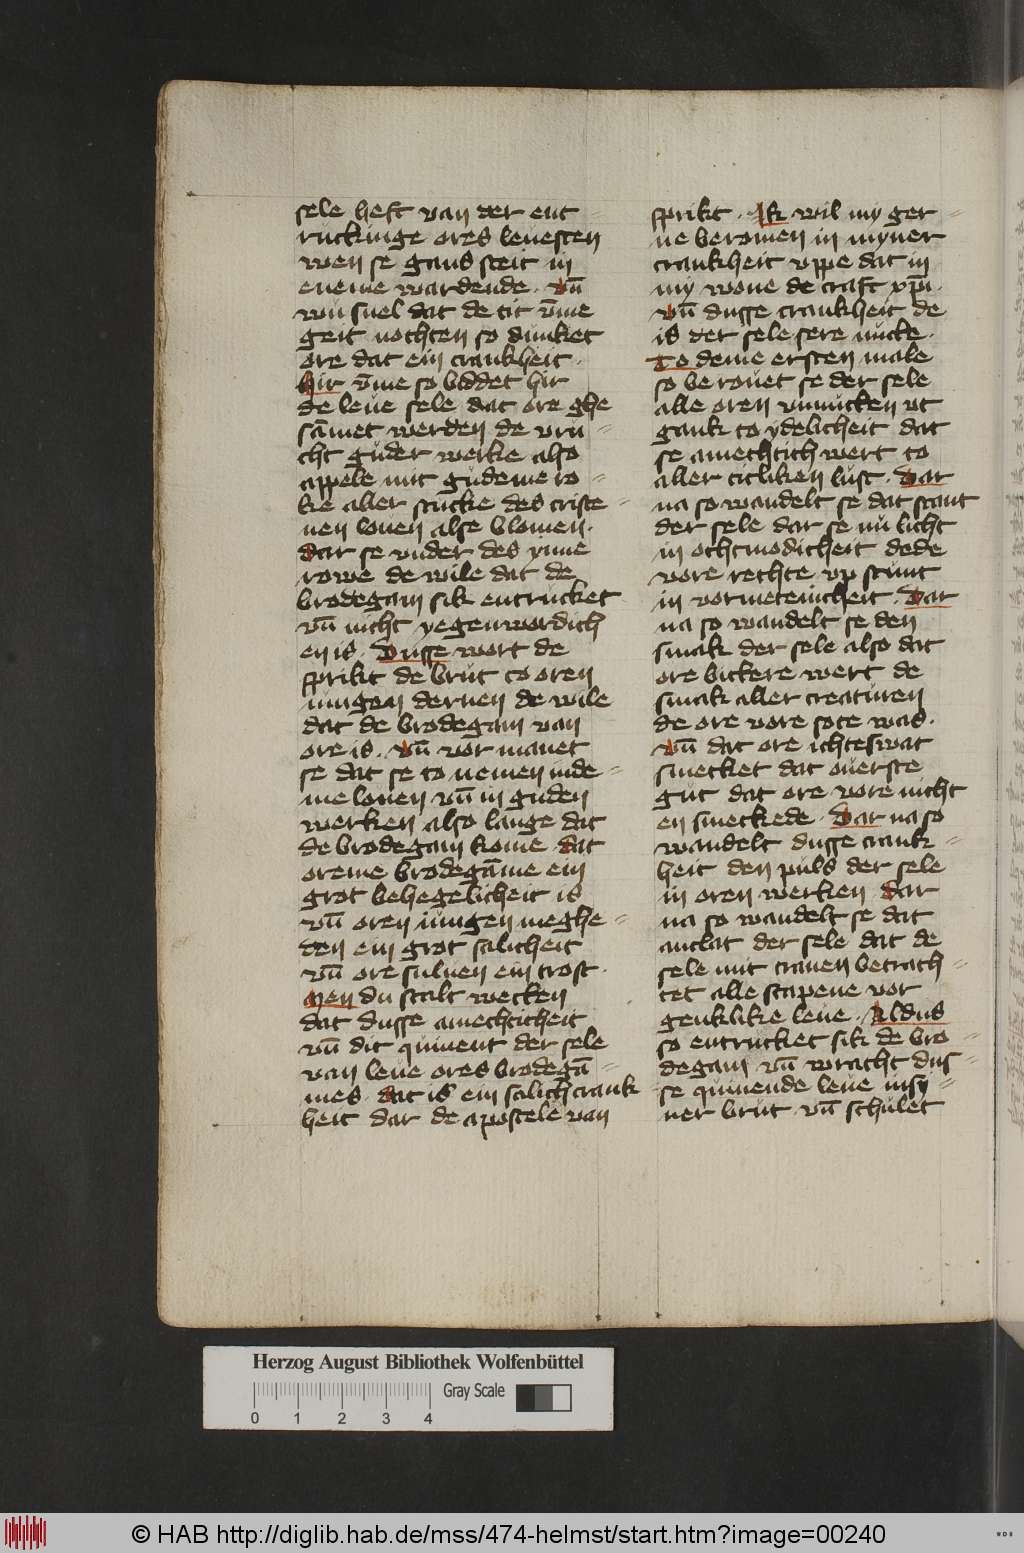 sele heft van der ent=
ruckinge ores leuesten
wen se gans steit in
eneme wardende. vn̄
wu suel dat de tit v̄me
geit nochten so dunket
ore dat ein crankheit.
hir v̄me so biddet hir
de leue sele dat ore ghe
sāmet werden de vru=
cht guder werke also
appele mit gudeme ro=
ke aller stucke des criste=
nen louen alse blomen.
dar se vnder des ynne
rowe de wile dat de
brodegam sik entrucket
vn̄ nicht yegenwordich
en is. Dusse wort de
sprikt de brut to oren
iungen dernen de wile
dat de brodegam van
ore is. vn̄ vor manet
se dat se to nemen inde=
me louen vn̄ in guden
werken also lange dat
de brodegam kome. dat
oreme brodegāme ein
grot behegelicheit is
vn̄ oren iungen meghe=
den ein grot salicheit
vn̄ ore suluen ein trost.
Men du scalt wecken
dat dusse amechticheit
vn̄ dit quinent der sele
van leue ores brodegā=
mes. dat is ein salich crank
heit dar de apostele van
sprikt. Ik wil my ger=
ne beromen in myner
crankheit vppe dat in
my wone de craft xp̄i.
vn̄ dusse crankheit de
is der sele sere nucke.
To deme ersten male
so berouet se der sele
alle oren vnnucken vt
gank to ydelicheit dat
se amechtich wert to
aller citliken lust. Dar
na so wandelt se dat stant
der sele dar se nu licht
in othmodicheit dede
vore rechte vp stunt
in vormetenicheit. Dar
na so wandelt se den
smak der sele also dat
ore bickere wert de
smak aller creaturen
de ore vore sote was.
vn̄ dat ore ichteswat
smecket dat ouerste
gut dat ore vore nicht
en smeckede. Dar na so
wandelt dusse crank=
heit den puls der sele
in oren werken dar
na so wandelt se dat
anclat der sele dat de
sele mit tranen betrach=
tet alle stapene vor
genklike leue. Aldus
so entrucket sik de bro=
degam vn̄ wracht dus=
se quinende leue insy=
ner brut. vn̄ schulet
Herzog August Bibliothek Wolfenbüttel
Gray Scale
0 1 2 3 4
© HAB http://diglib.hab.de/mss/474-helmst/start.htm?image=00240